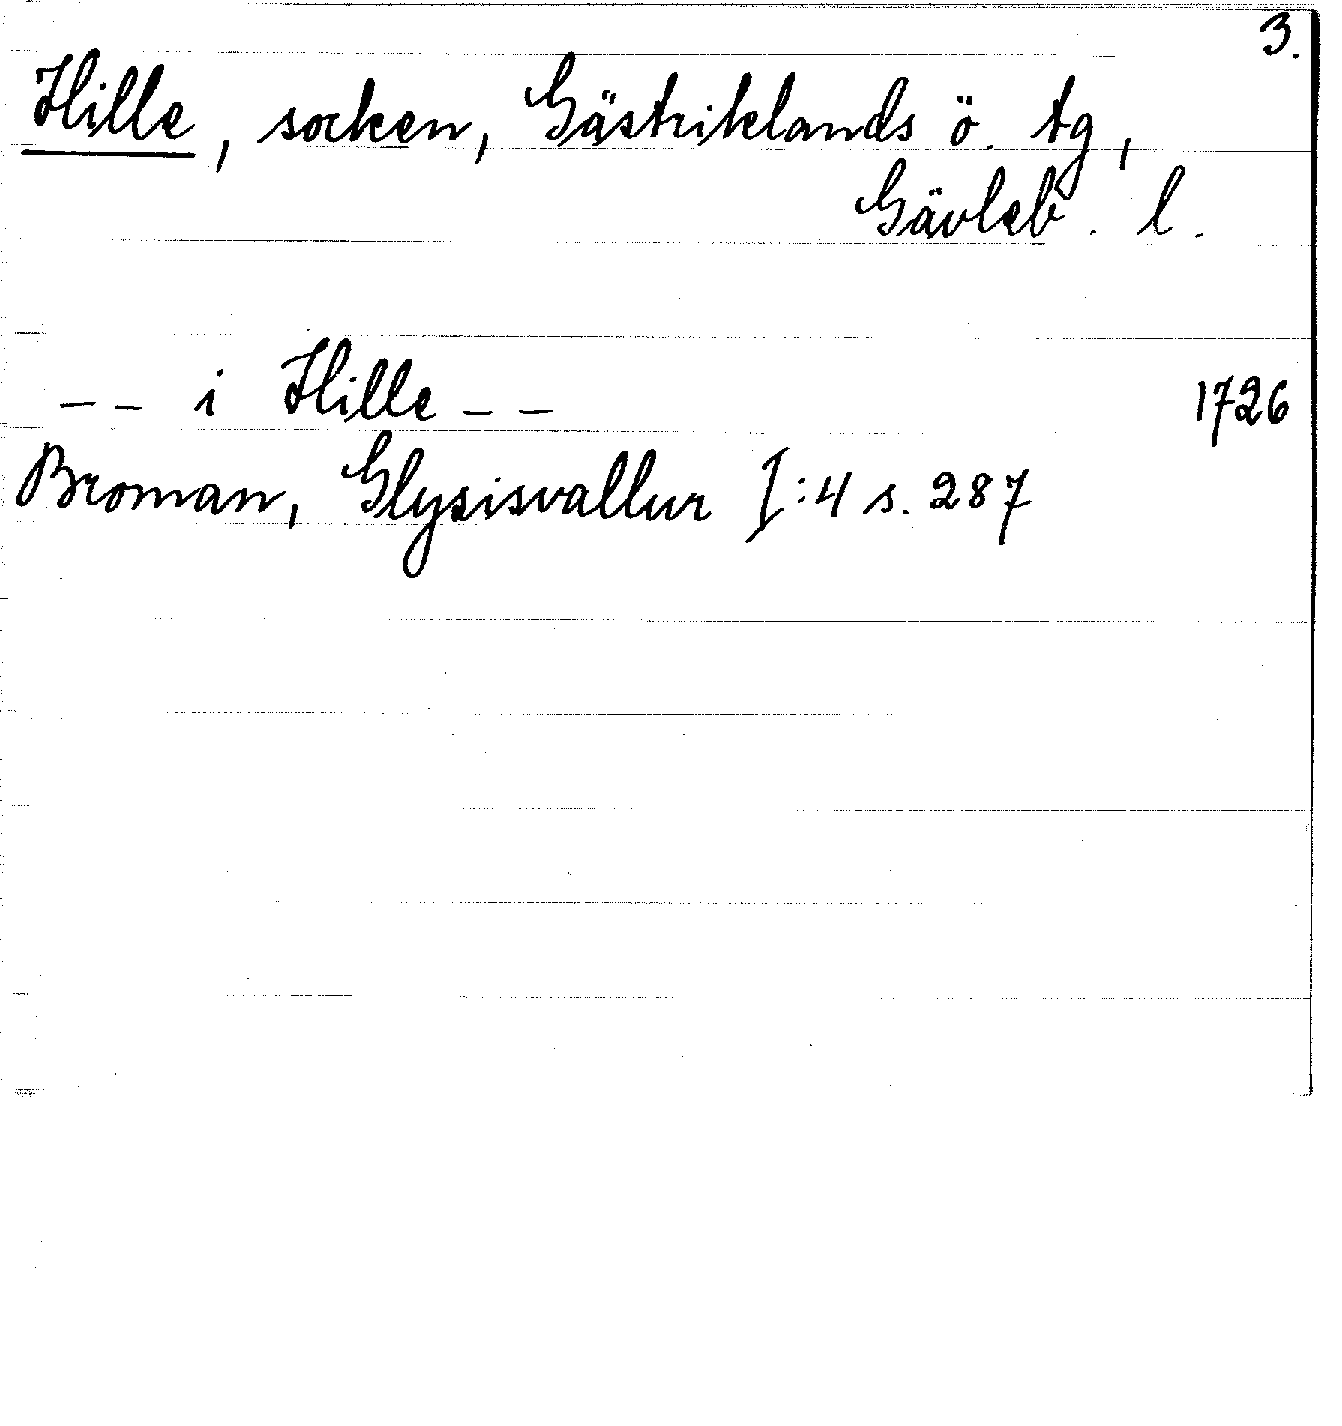 3.
Hille, socken, Gästriklands ö. tg,
Gävleb. l.
-- i Hille -- 1726
Broman, Glysisvallur I:4 s. 287